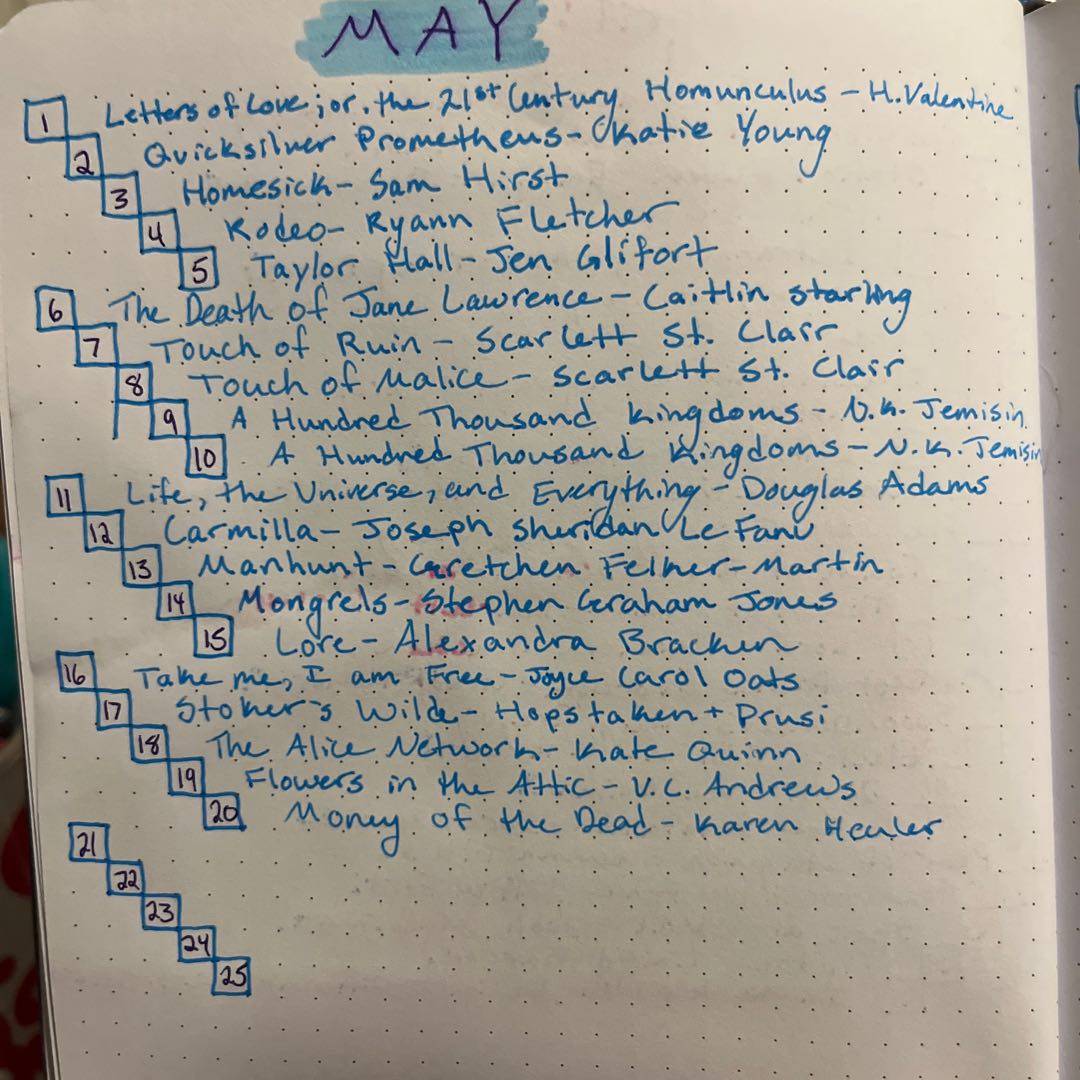 MAY
1 Letters of Love; or, the 21st Century Homunculus - H. Valentine
2 Quicksilver Prometheus - Katie Young
3 Homesick - Sam Hirst
4 Rodeo - Ryann Fletcher
5 Taylor Hall - Jen Glifort
6 The Death of Jane Lawrence - Caitlin Starling
7 Touch of Ruin - Scarlett St. Clair
8 Touch of Malice - Scarlett St. Clair
9 A Hundred Thousand Kingdoms - N.K. Jemisin
10 A Hundred Thousand Kingdoms - N.K. Jemisin
11 Life, the Universe, and Everything - Douglas Adams
12 Carmilla - Joseph Sheridan Le Fanu
13 Manhunt - Gretchen Felker-Martin
14 Mongrels - Stephen Graham Jones
15 Lore - Alexandra Bracken
16 Take me, I am Free - Joyce Carol Oats
17 Stoker's Wilde - Hopstaken + Prusi
18 The Alice Network - Kate Quinn
19 Flowers in the Attic - V.C. Andrews
20 Money of the Dead - Karen Heuler
21
22
23
24
25